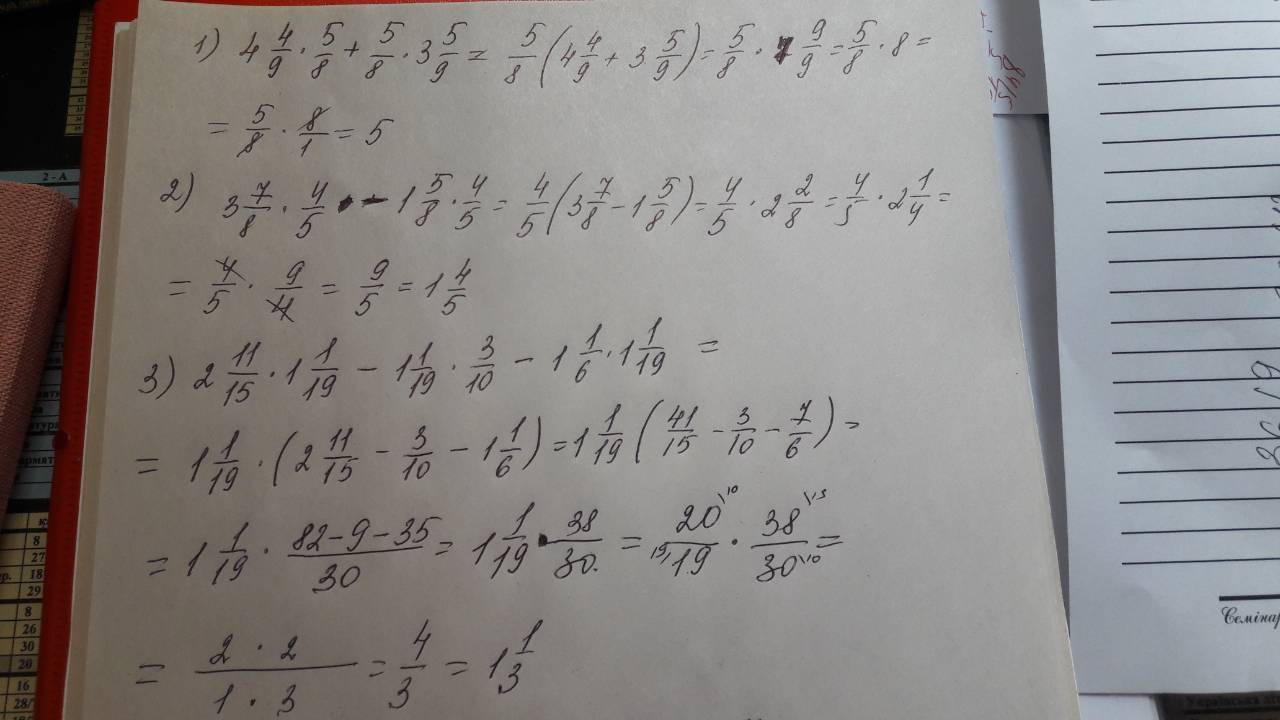 1) 4 4/9 · 5/8 + 5/8 · 3 5/9 = 5/8 (4 4/9 + 3 5/9) = 5/8 · 7 9/9 = 5/8 · 8 =
= 5/8 · 8/1 = 5
2) 3 7/8 · 4/5 - 1 5/8 · 4/5 = 4/5 (3 7/8 - 1 5/8) = 4/5 · 2 2/8 = 4/5 · 2 1/4 =
= 4/5 · 9/4 = 9/5 = 1 4/5
3) 2 11/15 · 1 1/19 - 1 1/19 · 3/10 - 1 1/6 · 1 1/19 =
= 1 1/19 · (2 11/15 - 3/10 - 1 1/6) = 1 1/19 (41/15 - 3/10 - 7/6) =
= 1 1/19 · 82-9-35/30 = 1 1/19 · 38/30 = 20/19 · 38/30 =
= 2 · 2/1 · 3 = 4/3 = 1 1/3
2 - А
8
27
18
29
8
26
30
20
16
28/
Семінар